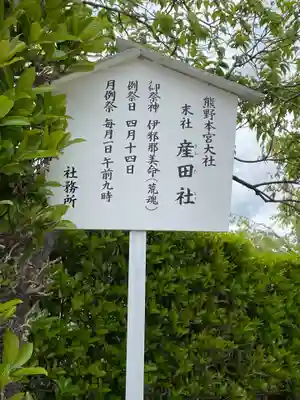 熊野本宮大社
末社 産田社
御祭神 伊邪那美命(荒魂)
例祭日 四月十四日
月例祭 毎月一日午前九時
社務所